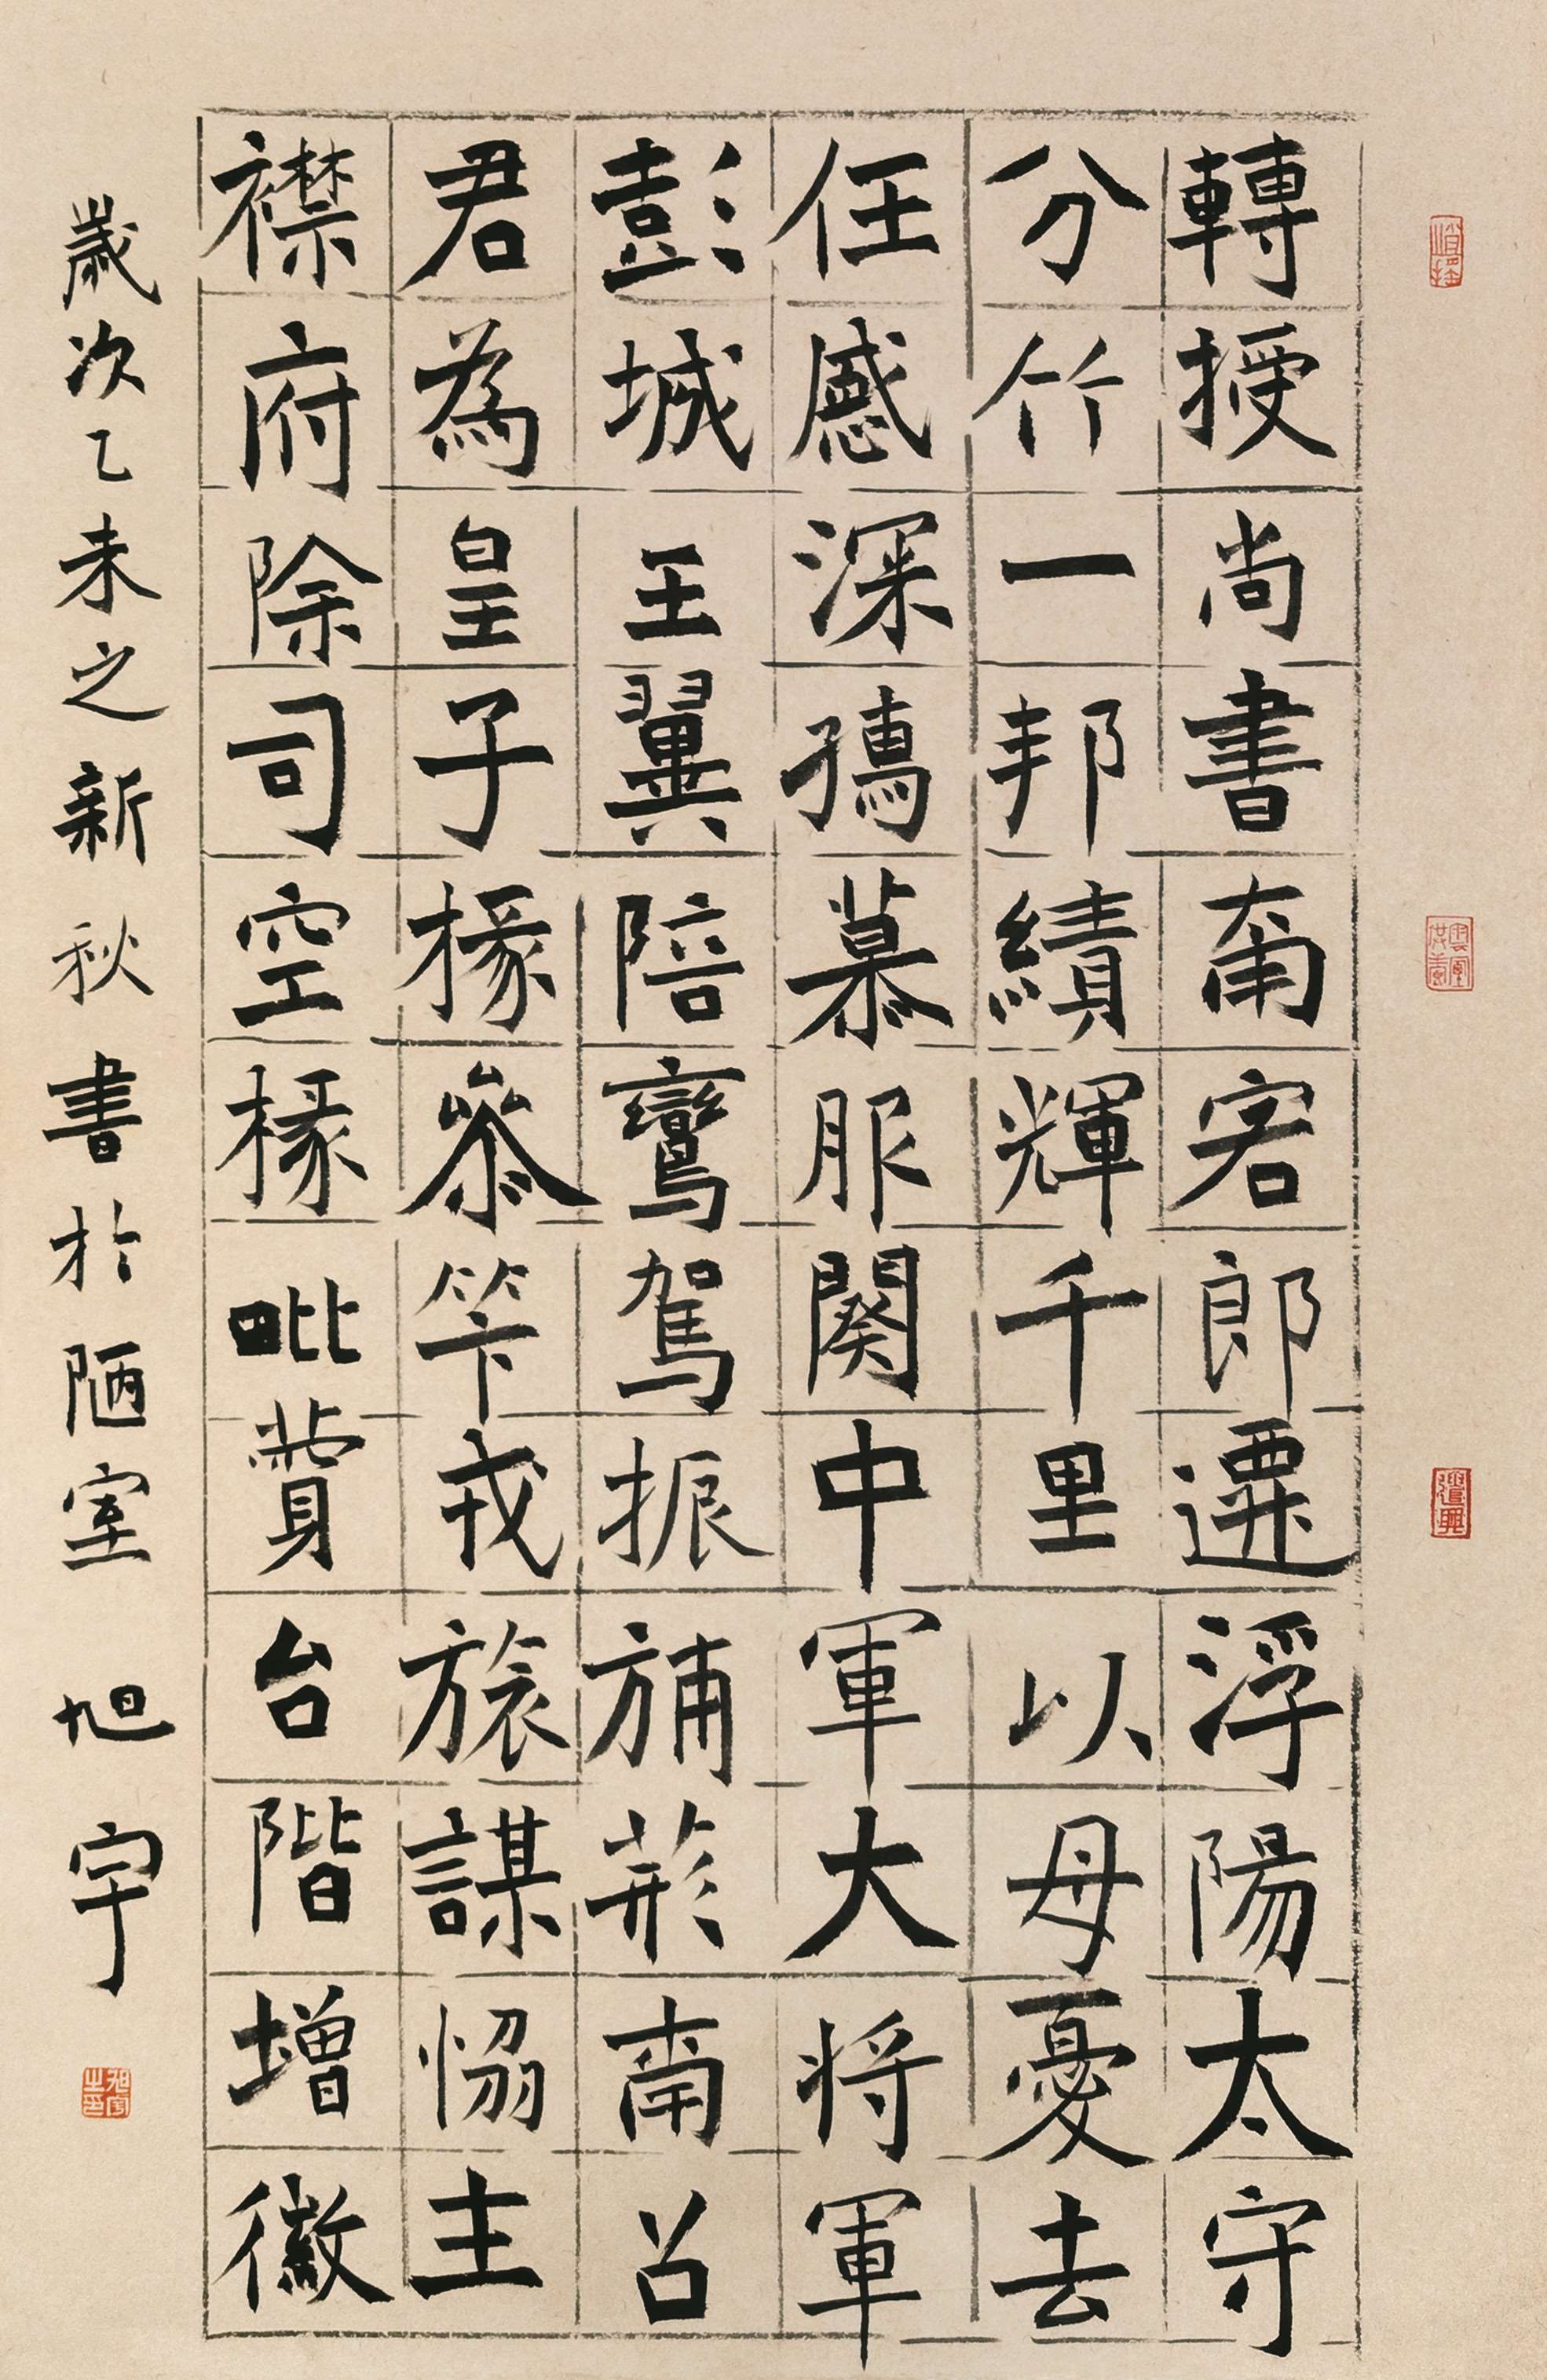 轉授尚書南客郎遷浮陽太守
分竹一邦績輝千里以母憂去
任感深孺慕服闋中軍大将軍
彭城王翼陪鸞駕振旆荊南召
君為皇子掾參笇戎旅謀恊主
襟府除司空掾毗贊台階增徽
歲次乙未之新秋書於陋室 旭宇
旭宇之印